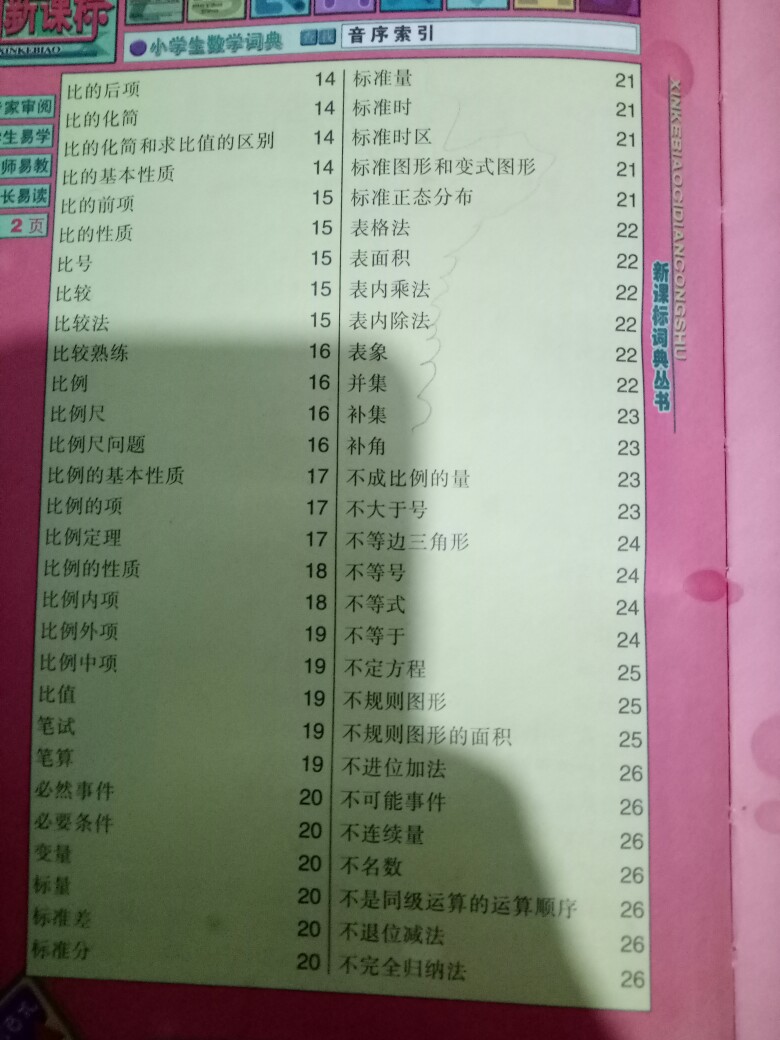 新课标
XINKEBIAO
小学生数学词典
音序索引
家审阅
生易学
师易教
长易读
2页
比的后项 14
比的化简 14
比的化简和求比值的区别 14
比的基本性质 14
比的前项 15
比的性质 15
比号 15
比较 15
比较法 15
比较熟练 16
比例 16
比例尺 16
比例尺问题 16
比例的基本性质 17
比例的项 17
比例定理 17
比例的性质 18
比例内项 18
比例外项 19
比例中项 19
比值 19
笔试 19
笔算 19
必然事件 20
必要条件 20
变量 20
标量 20
标准差 20
标准分 20
标准量 21
标准时 21
标准时区 21
标准图形和变式图形 21
标准正态分布 21
表格法 22
表面积 22
表内乘法 22
表内除法 22
表象 22
并集 22
补集 23
补角 23
不成比例的量 23
不大于号 23
不等边三角形 24
不等号 24
不等式 24
不等于 24
不定方程 25
不规则图形 25
不规则图形的面积 25
不进位加法 26
不可能事件 26
不连续量 26
不名数 26
不是同级运算的运算顺序 26
不退位减法 26
不完全归纳法 26
XINKEBIAOCIDIANCONGSHU
新课标词典丛书